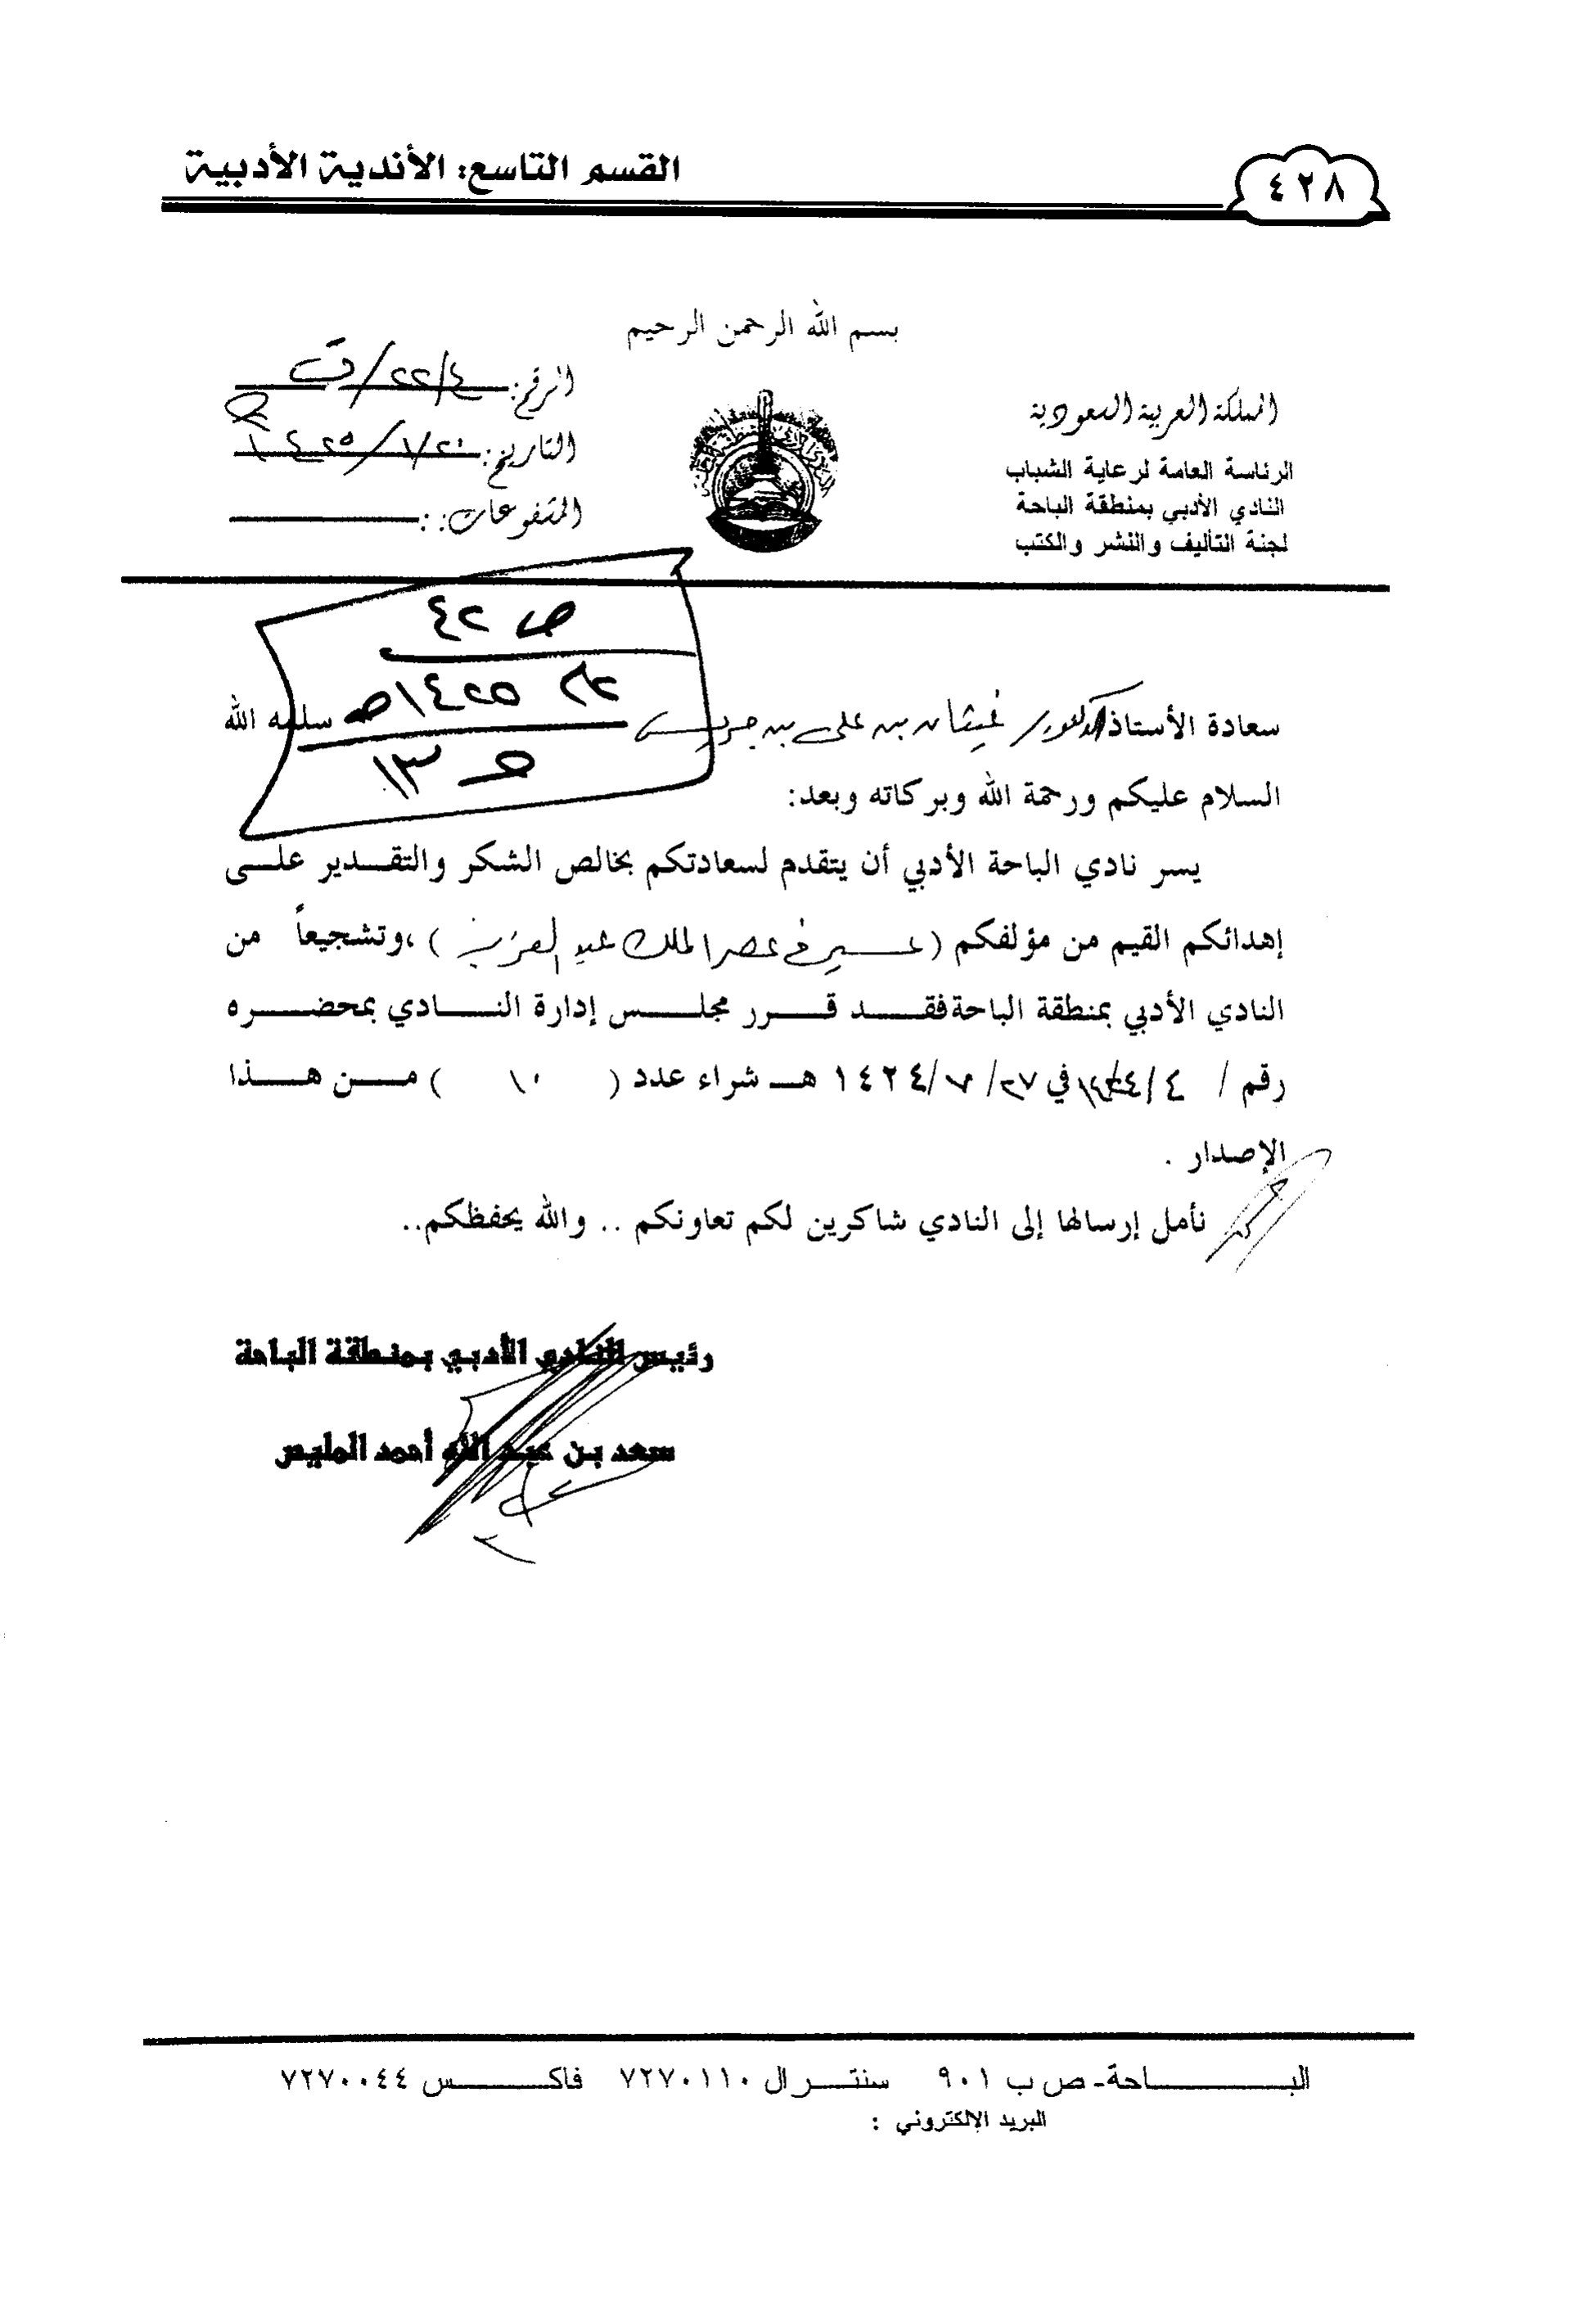 ٤٢٨
القسم التاسع: الأندية الأدبية
بسم الله الرحمن الرحيم
المملكة العربية السعودية
الرئاسة العامة لرعاية الشباب
النادي الأدبي بمنطقة الباحة
لجنة التأليف والنشر والكتب
الرقم: ٢٢/٤/ت
التاريخ: ١٤٢٥/١/٢٠
المشفوعات:
ص ٤٢
١٤٢٥هـ
١٣
سعادة الأستاذ الدكتور/ غيثان بن علي بن جريس سلمه الله
السلام عليكم ورحمة الله وبركاته وبعد:
يسر نادي الباحة الأدبي أن يتقدم لسعادتكم بخالص الشكر والتقدير على
إهدائكم القيم من مؤلفكم (عسير في عصر الملك عبد العزيز)،وتشجيعاً من
النادي الأدبي بمنطقة الباحة فقد قرر مجلس إدارة النادي بمحضره
رقم / في ٢٧/ ٧/ ١٤٢٤ هـ شراء عدد ( ١٠ ) من هذا
الإصدار .
نأمل إرسالها إلى النادي شاكرين لكم تعاونكم .. والله يحفظكم..
رئيس النادي الأدبي بمنطقة الباحة
سعد بن عبد الله أحمد المليص
الباحة- ص ب ٩٠١ سنترال ٧٢٧٠١١٠ فاكس ٧٢٧٠٠٤٤
البريد الإلكتروني :